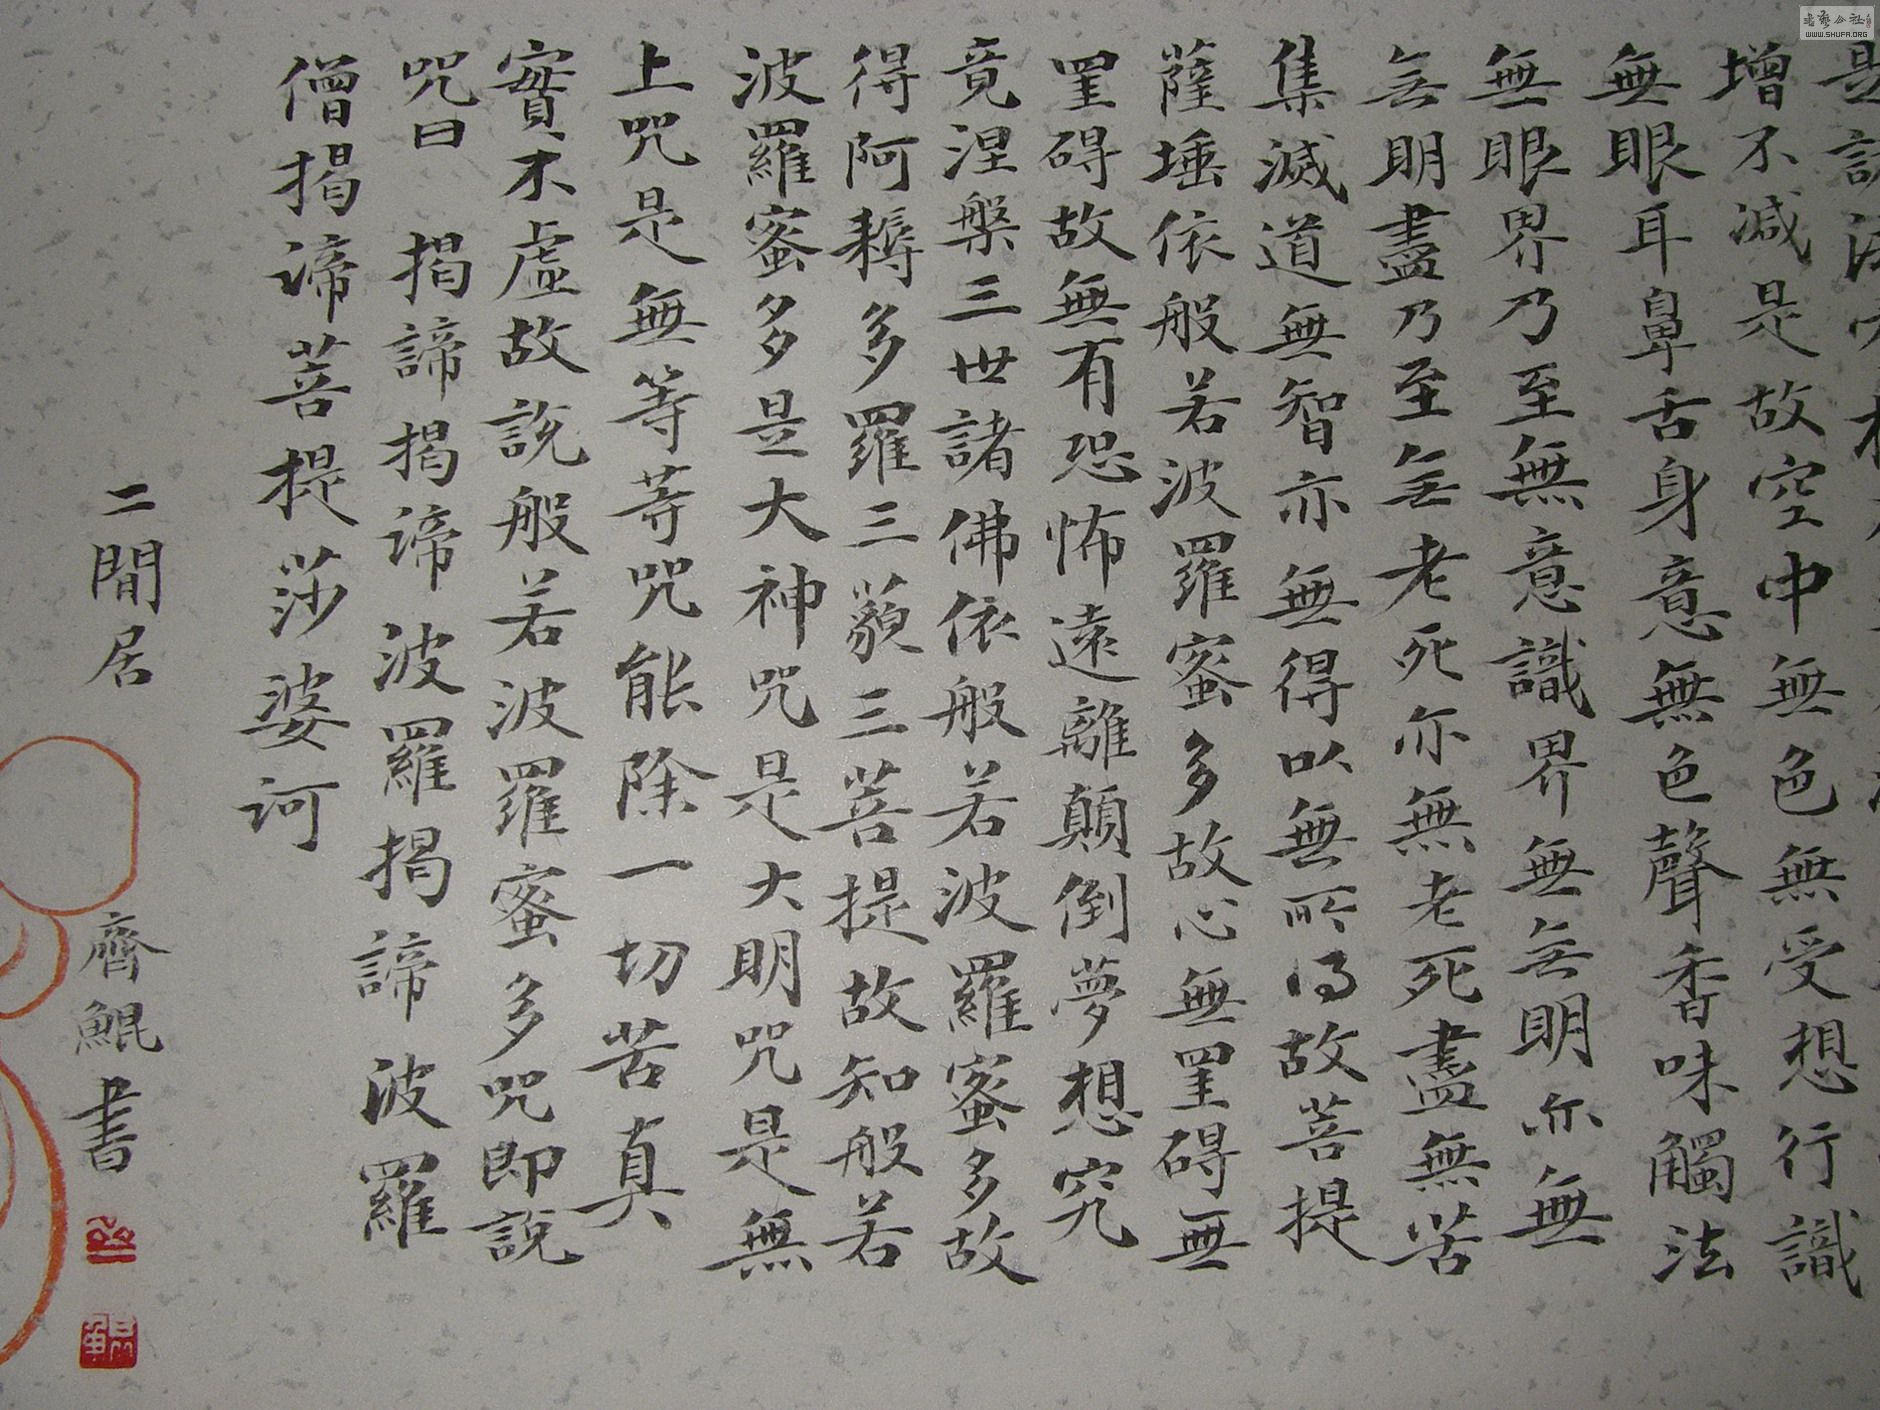 是諸法空相
增不減是故空中無色無受想行識
無眼耳鼻舌身意無色聲香味觸法
無眼界乃至無意識界無无明亦無
无明盡乃至无老死亦無老死盡無苦
集滅道無智亦無得以無所得故菩提
薩埵依般若波羅蜜多故心無罣碍無
罣碍故無有恐怖遠離顛倒夢想究
竟涅槃三世諸佛依般若波羅蜜多故
得阿耨多羅三藐三菩提故知般若
波羅蜜多是大神咒是大明咒是無
上咒是無等等咒能除一切苦真
實不虛故說般若波羅蜜多咒即說
咒曰 揭諦揭諦波羅揭諦波羅
僧揭諦菩提莎婆訶
二閒居 齊鯤書
書法公社
WWW.SHUFA.ORG